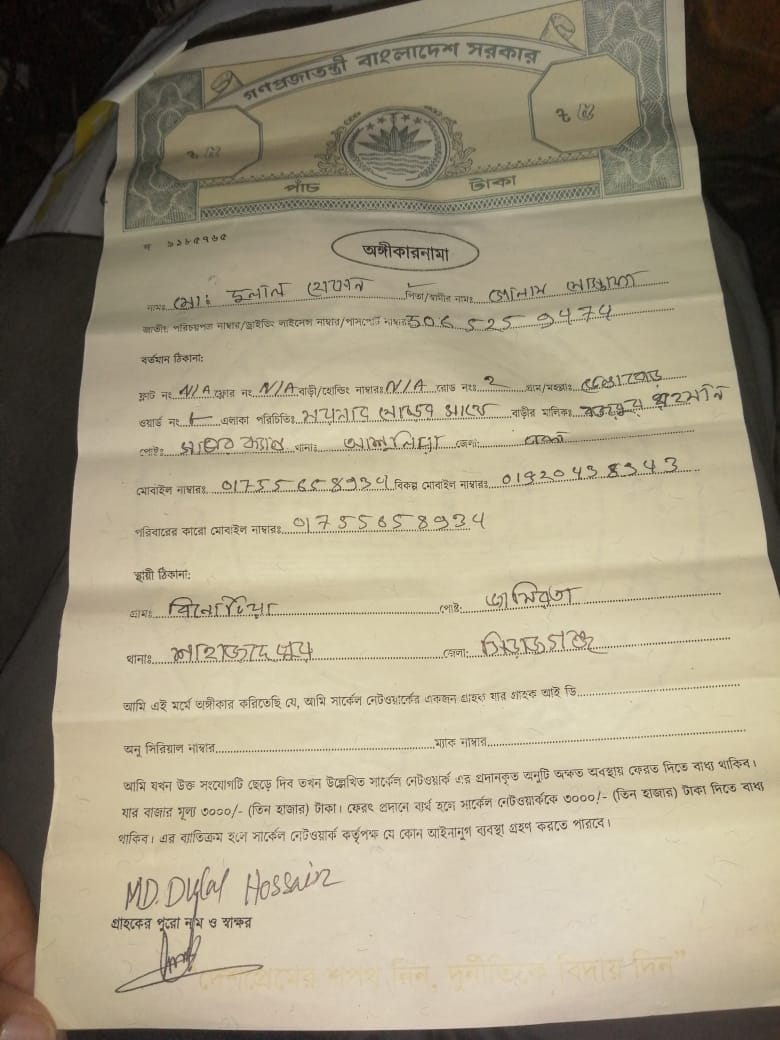 গণপ্রজাতন্ত্রী বাংলাদেশ সরকার
৳ ৫ ৳ ৫
পাঁচ টাকা
অঙ্গীকারনামা
নামঃ মোঃ দুলাল হোসেন পিতা/স্বামীর নামঃ গোলাম মোস্তফা
জাতীয় পরিচয়পত্র নাম্বার/ড্রাইভিং লাইসেন্স নাম্বার/পাসপোর্ট নাম্বারঃ 506 525 9474
বর্তমান ঠিকানা:
ফ্লাট নং N/A ফ্লোর নং N/A বাড়ী/হোল্ডিং নাম্বারঃ N/A রোড নংঃ 2 গ্রাম/মহল্লাঃ
ওয়ার্ড নং এলাকা পরিচিতিঃ বাড়ীর মালিকঃ রহমান
পোষ্টঃ থানাঃ আশুলিয়া জেলা: ঢাকা
মোবাইল নাম্বারঃ 01755658934 বিকল্প মোবাইল নাম্বারঃ 01920438343
পরিবারের কারো মোবাইল নাম্বারঃ 01755658934
স্থায়ী ঠিকানা:
গ্রামঃ বিনোটিয়া পোষ্ট: জামিরতা
থানাঃ শাহাজাদপুর জেলা: সিরাজগঞ্জ
আমি এই মর্মে অঙ্গীকার করিতেছি যে, আমি সার্কেল নেটওয়ার্কের একজন গ্রাহক যার গ্রাহক আই ডি
অনু সিরিয়াল নাম্বার ম্যাক নাম্বার
আমি যখন উক্ত সংযোগটি ছেড়ে দিব তখন উল্লেখিত সার্কেল নেটওয়ার্ক এর প্রদানকৃত অনুটি অক্ষত অবস্থায় ফেরত দিতে বাধ্য থাকিব।
যার বাজার মূল্য ৩০০০/- (তিন হাজার) টাকা। ফেরৎ প্রদানে ব্যর্থ হলে সার্কেল নেটওয়ার্ককে ৩০০০/- (তিন হাজার) টাকা দিতে বাধ্য
থাকিব। এর ব্যতিক্রম হলে সার্কেল নেটওয়ার্ক কর্তৃপক্ষ যে কোন আইনানুগ ব্যবস্থা গ্রহণ করতে পারবে।
MD. Dulal Hossain
গ্রাহকের পুরো নাম ও স্বাক্ষর
"দেশপ্রেমের শপথ নিন, দুর্নীতিকে বিদায় দিন"